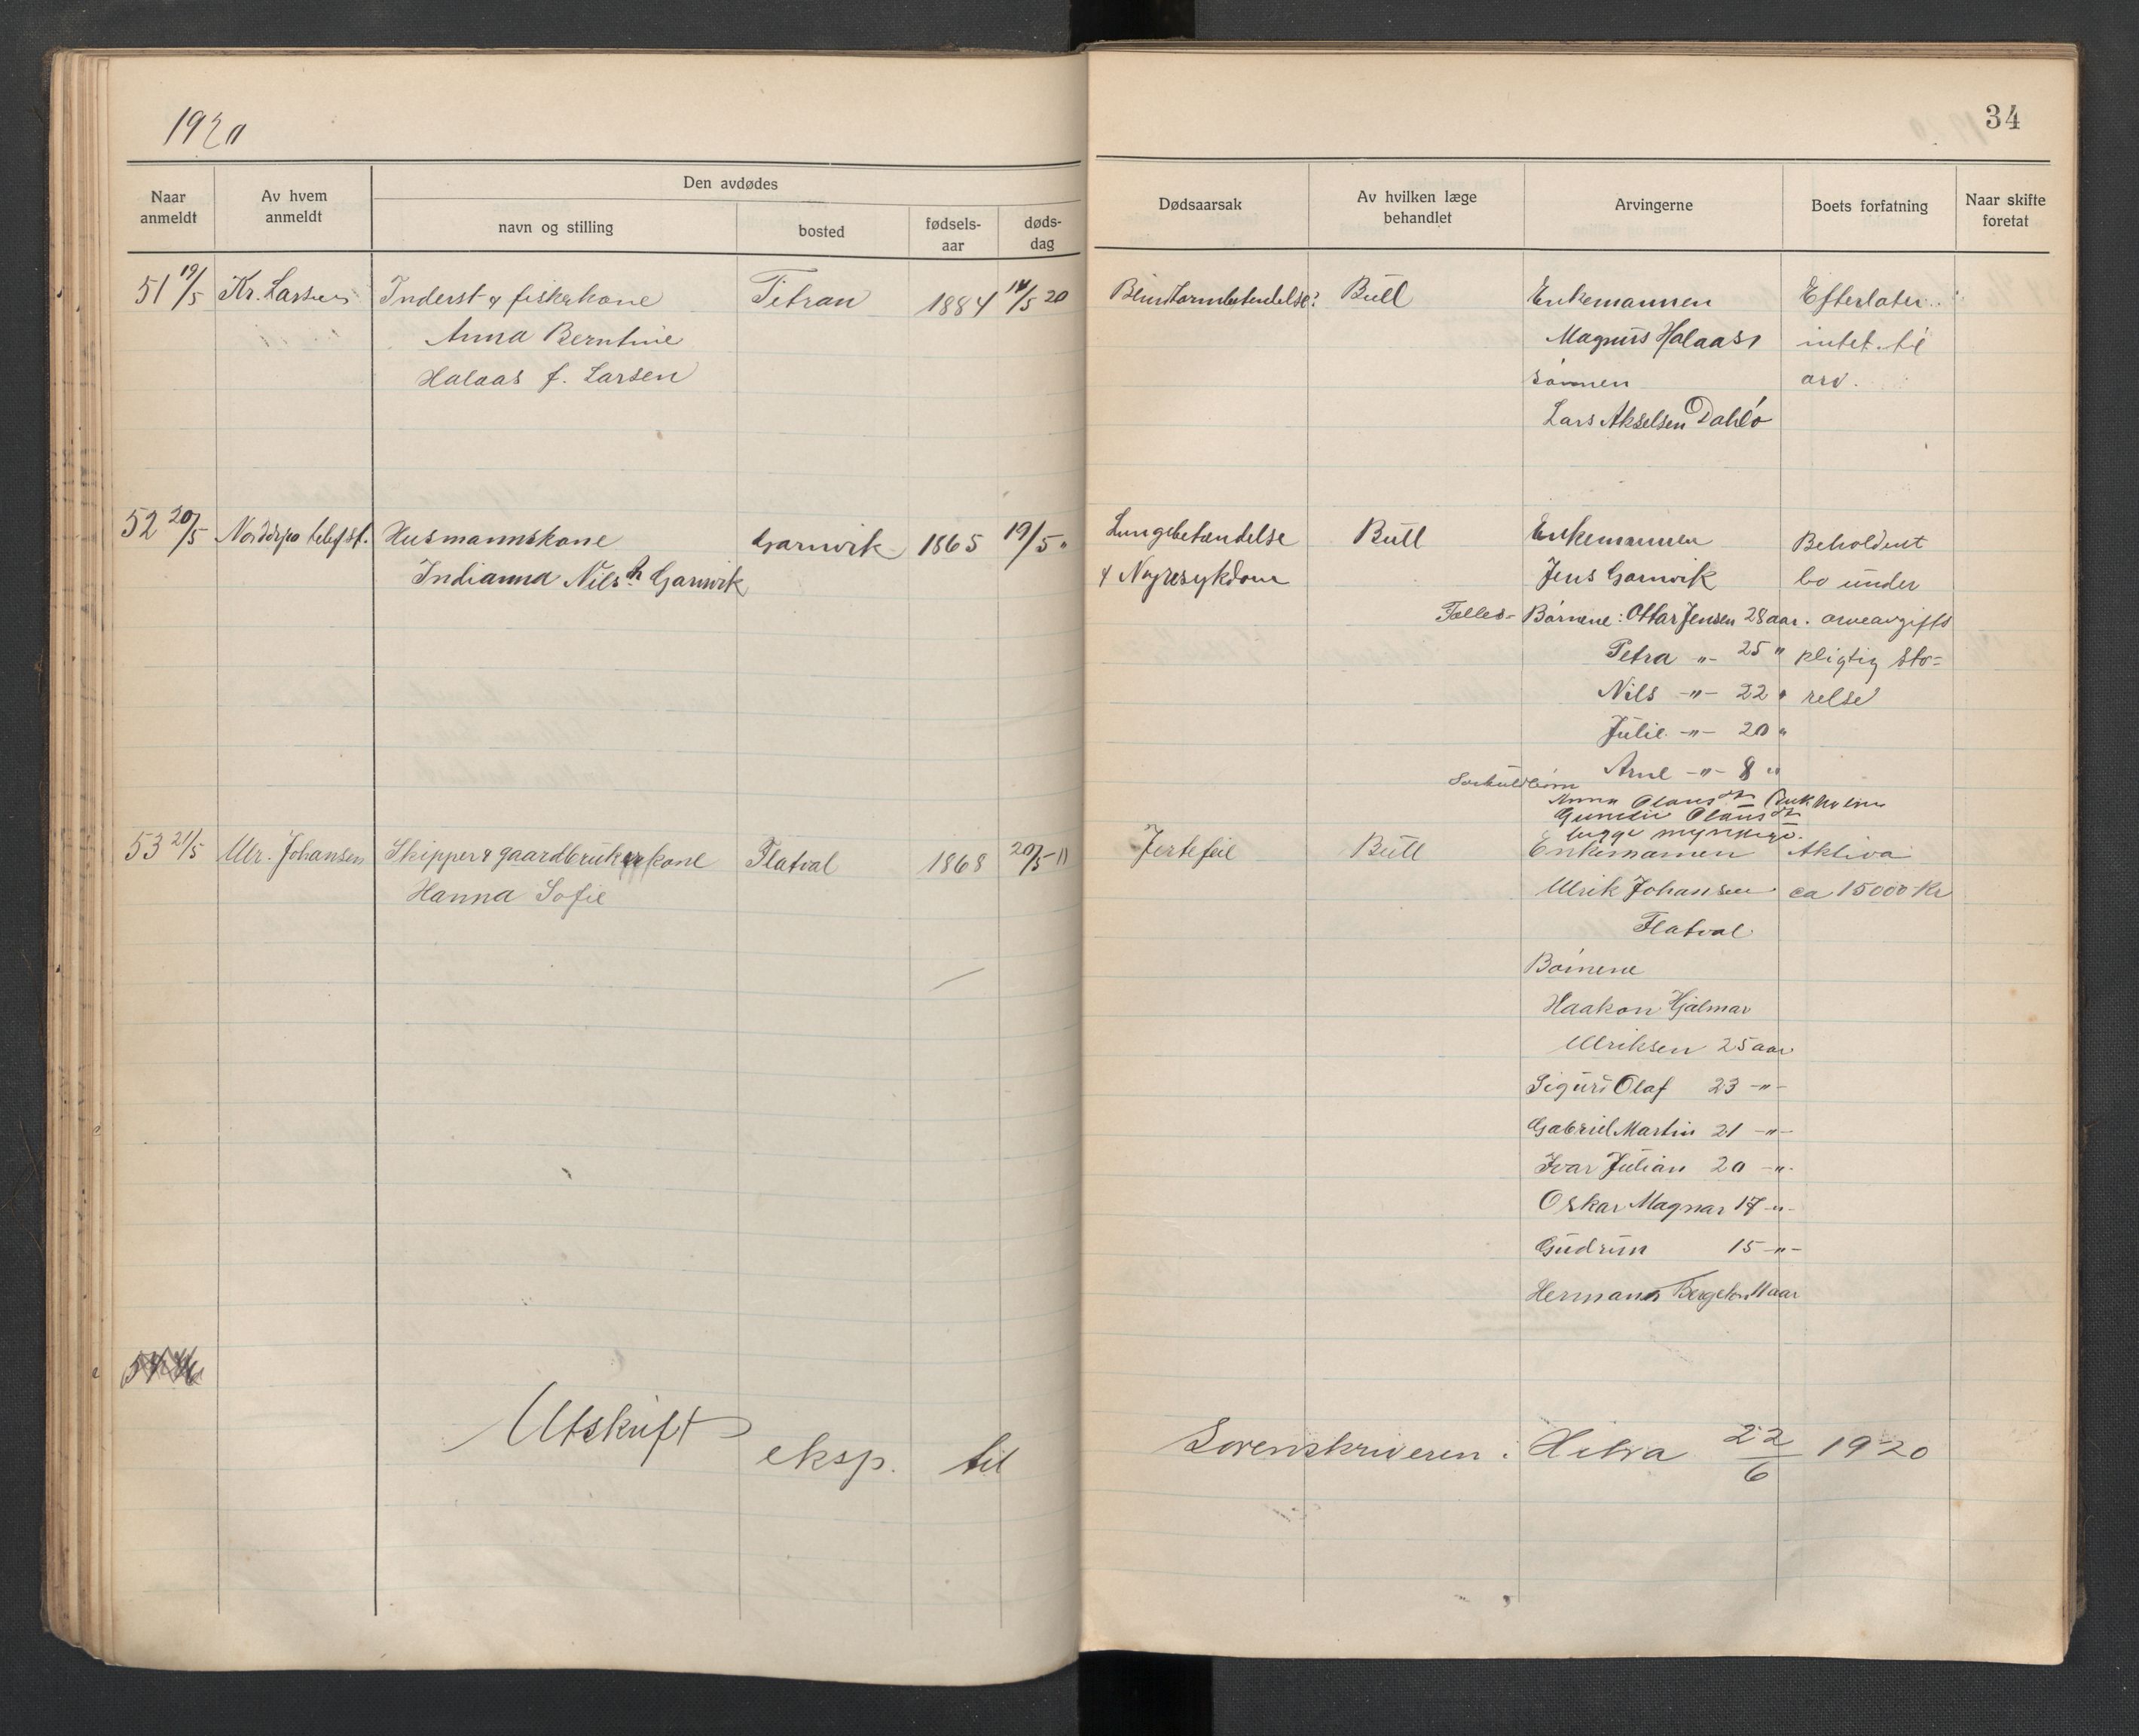 1920
34
Naar anmeldt
Av hvem anmeldt
Den avdødes
navn og stilling
bosted
fødsels-aar
døds-dag
Dødsaarsak
Av hvilken læge behandlet
Arvingerne
Boets forfatning
Naar skifte foretat
51 19/5 Kr. Larsen Inderst & fiskerkone Titran 1884 14/5 20 Blindtarmbetendelse? Bull Enkemannen Efterlater
Anna Berntine Magnus Halaas, intet til
Halaas f. Larsen sønnen arv.
Lars Akselsen Dahlø
52 20/5 telefst. Husmannskone Garnvik 1865 19/5 " Lungebetændelse Bull Enkemannen Beholdent
Indianna Nilsd. Garnvik & Nyresykdom Jens Garnvik bo under
Fælles- Børnene: Ottar Jensen 28 aar. arveavgifts
Petra -"- 25 " pligtig stø-
Nils -"- 22 " relse
Julie -"- 20 "
Arne -"- 8 "
Særkuldbørn
Anna Olausdtr
Olausdtr
begge myndige.
53 21/5 Ulr. Johansen Skipper & gaardbrukerkone Flatval 1868 20/5 " Jertefeil Bull Enkemannen Aktiva
Hanna Sofie Ulrik Johansen ca 15000 Kr
Flatval
Børnene
Haakon Hjalmar
Ulriksen 25 aar
Sigurd Olaf 23 -"-
Gabriel Martin 21 -"-
Ivar Julian 20 -"-
Oskar Magnar 17 -"-
Gudrun 15 -"-
Hermann Bergeton 11 aar
54
Utskrift eksp. til Sorenskriveren i Hitra 22/6 1920